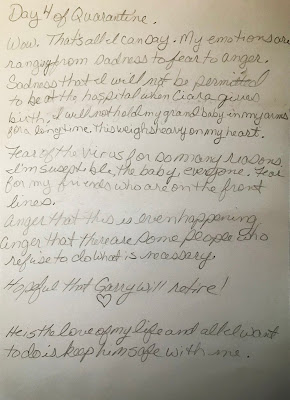 Day 4 of Quarantine.
Wow. That's all I can say. My emotions are
ranging from sadness to fear to anger.
Sadness that I will not be permitted
to be at the hospital when Ciara gives
birth. I will not hold my grand baby in my arms
for a long time. This weighs heavy on my heart.
Fear of the virus for so many reasons.
I'm suseptible, the baby, everyone. Fear
for my friends who are on the front
lines.
Anger that this is even happening
Anger that there are some people who
refuse to do what is necessary.
Hopeful that Garry will retire!
♡
He is the love of my life and all I want
to do is keep him safe with me.